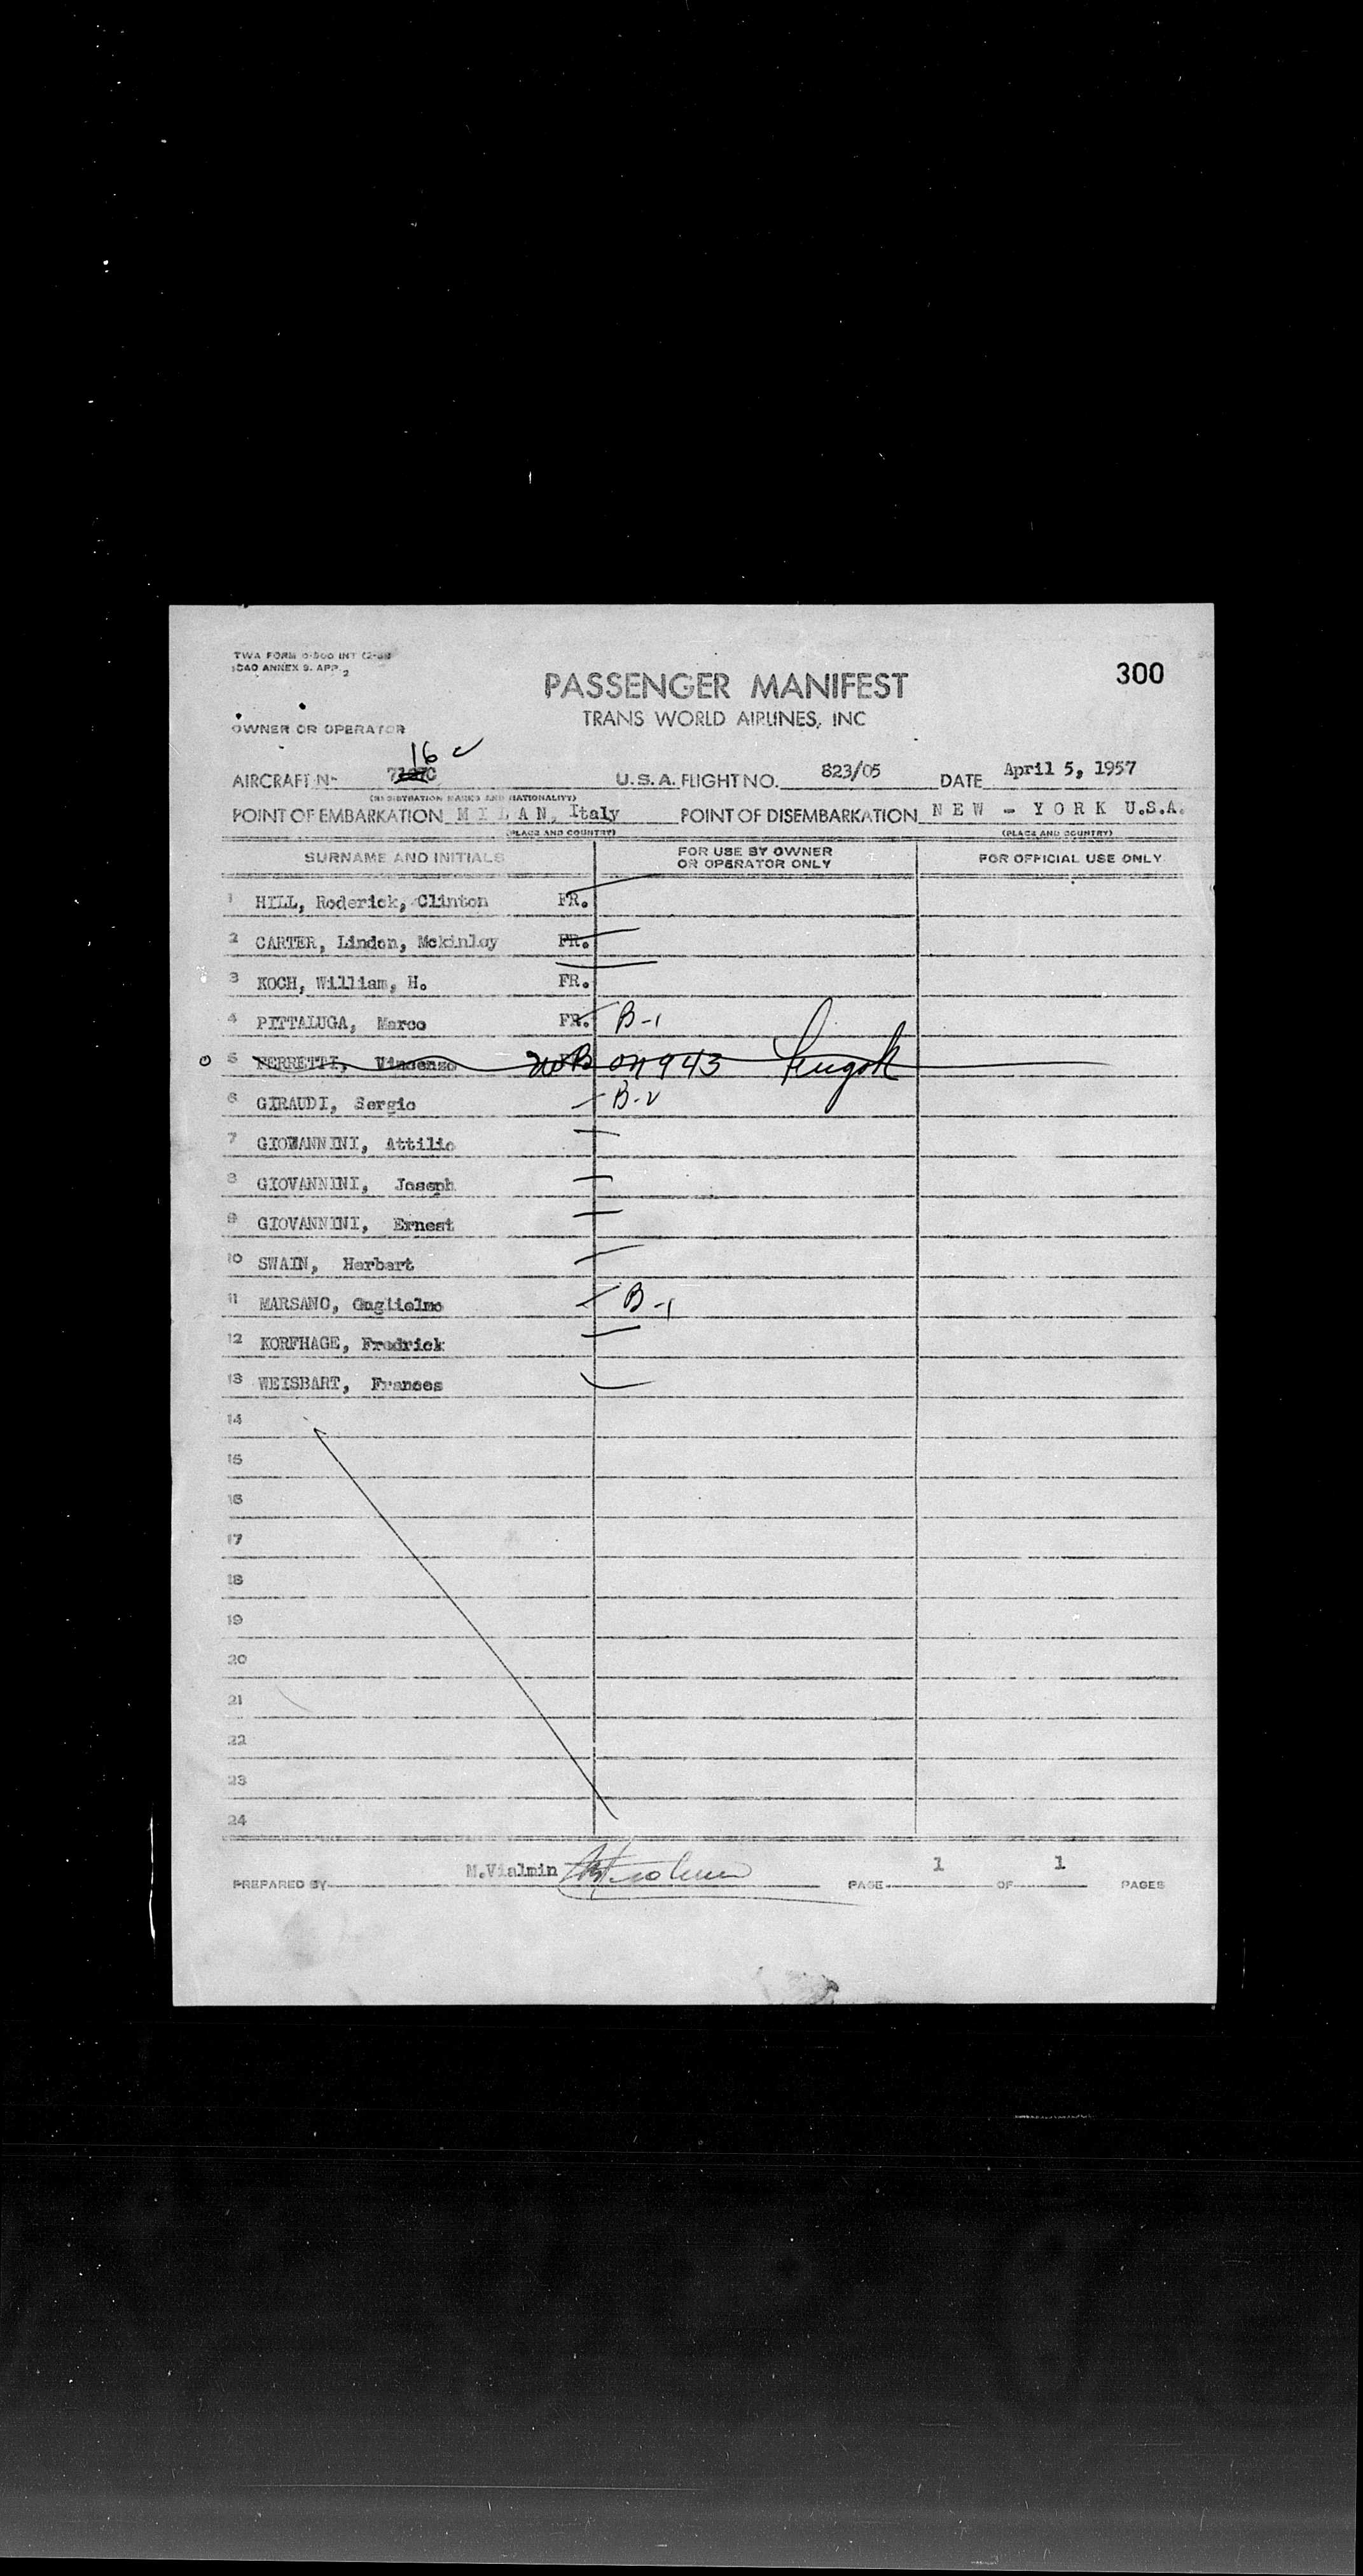 TWA FORM 0-500 INT
ICAO ANNEX 9. APP 2
300
PASSENGER MANIFEST
TRANS WORLD AIRLINES, INC
OWNER OR OPERATOR
16
AIRCRAFT Nº C U.S.A. FLIGHT NO. 823/05 DATE April 5, 1957
(REGISTRATION MARKS AND NATIONALITY)
POINT OF EMBARKATION M I L A N, Italy POINT OF DISEMBARKATION N E W - Y O R K U.S.A.
(PLACE AND COUNTRY) (PLACE AND COUNTRY)
SURNAME AND INITIALS FOR USE BY OWNER OR OPERATOR ONLY FOR OFFICIAL USE ONLY
1 HILL, Roderick, Clinton FR.
2 CARTER, Lindon, Mckinley FR.
3 KOCH, William, H. FR.
4 PITTALUGA, Marco FR. B-1
5 FERRETTI, Vincenzo NOB ON 943
6 GIRAUDI, Sergio B-2
7 GIOVANNINI, Attilio
8 GIOVANNINI, Joseph
9 GIOVANNINI, Ernest
10 SWAIN, Herbert
11 MARSANO, Guglielmo B-1
12 KORFHAGE, Fredrick
13 WEISBART, Frances
14
15
16
17
18
19
20
21
22
23
24
PREPARED BY M.Vialmin PAGE 1 OF 1 PAGES